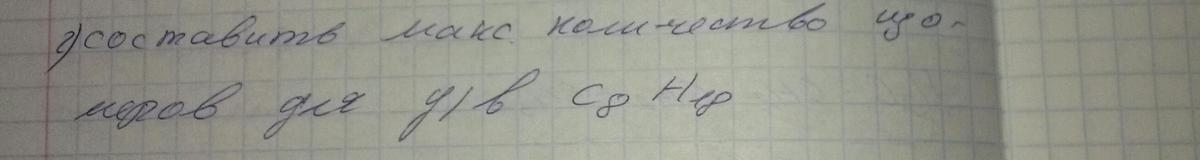 2) составить макс. количество изо-
меров для у/в C8 H18